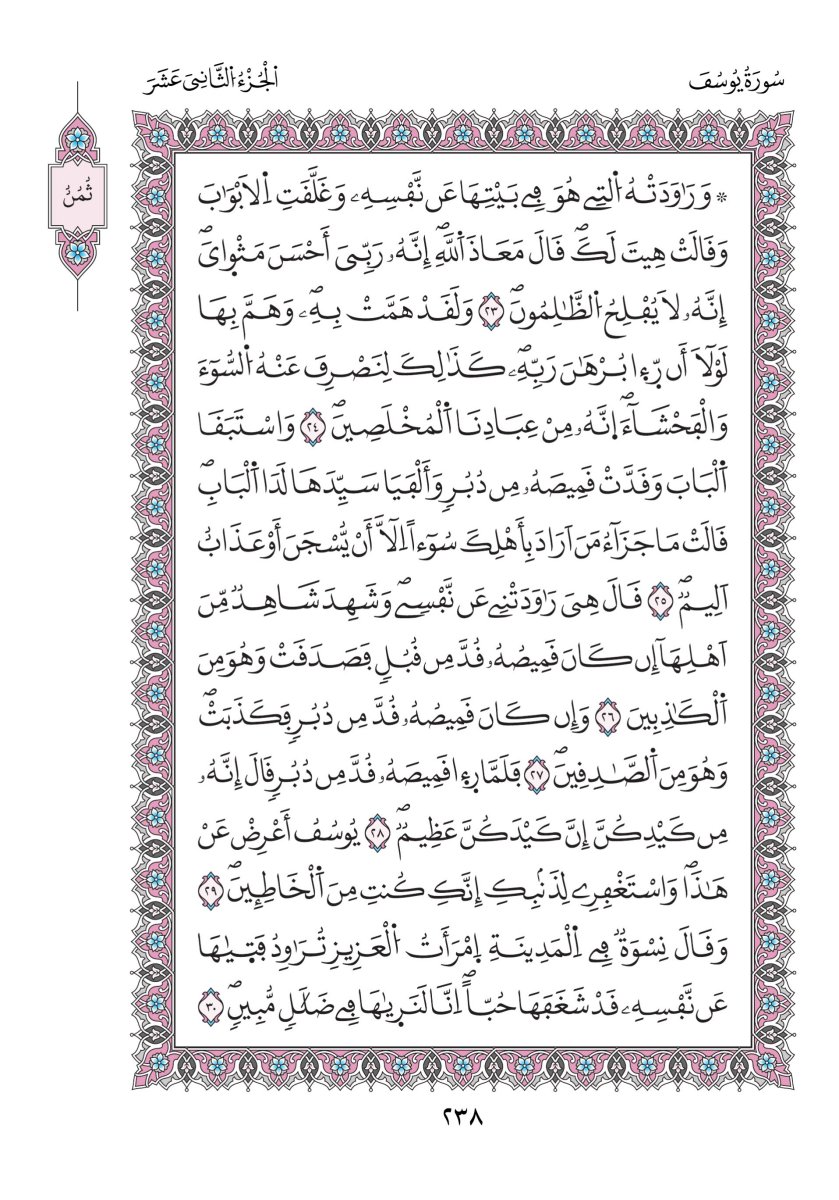 سُورَةُ يُوسُفَ
اَ۬لْجُزْءُ اُ۬لثَّانِيَ عَشَرَ
ثُمُنُ
۞ وَرَٰوَدَتْهُ اُ۬لتِے هُوَ فِے بَيْتِهَا عَن نَّفْسِهِۦ وَغَلَّقَتِ اِ۬لَابْوَٰبَ
وَقَالَتْ هِيتَ لَكَۖ قَالَ مَعَاذَ اَ۬للَّهِۖ إِنَّهُۥ رَبِّيَ أَحْسَنَ مَثْو۪ايَۖ
إِنَّهُۥ لَا يُفْلِحُ اُ۬لظَّٰلِمُونَۖ ٢٣ وَلَقَدْ هَمَّتْ بِهِۦۖ وَهَمَّ بِهَا
لَوْلَآ أَن رّ۪ء۪ا بُرْهَٰنَ رَبِّهِۦۖ كَذَٰلِكَ لِنَصْرِفَ عَنْهُ اُ۬لسُّوٓءَ
وَالْفَحْشَآءَۖ اِ۪نَّهُۥ مِنْ عِبَادِنَا اَ۬لْمُخْلَصِينَۖ ٢٤ وَاسْتَبَقَا
اَ۬لْبَابَ وَقَدَّتْ قَمِيصَهُۥ مِن دُبُرٖ وَأَلْفَيَا سَيِّدَهَا لَدَا اَ۬لْبَابِۖ
قَالَتْ مَا جَزَآءُ مَنَ اَرَادَ بِأَهْلِكَ سُوٓءاً اِلَّآ أَنْ يُّسْجَنَ أَوْ عَذَابٌ
اَلِيمٞۖ ٢٥ قَالَ هِيَ رَٰوَدَتْنِے عَن نَّفْسِےۖ وَشَهِدَ شَاهِدٞ مِّنَ
اَهْلِهَآ إِن كَانَ قَمِيصُهُۥ قُدَّ مِن قُبُلٖ فَصَدَقَتْ وَهُوَ مِنَ
اَ۬لْكَٰذِبِينَ ٢٦ وَإِن كَانَ قَمِيصُهُۥ قُدَّ مِن دُبُرٖ فَكَذَبَتْۖ
وَهُوَ مِنَ اَ۬لصَّٰدِقِينَۖ ٢٧ فَلَمَّا ر۪ء۪ا قَمِيصَهُۥ قُدَّ مِن دُبُرٖ قَالَ إِنَّهُۥ
مِن كَيْدِكُنَّ إِنَّ كَيْدَكُنَّ عَظِيمٞۖ ٢٨ يُوسُفُ أَعْرِضْ عَنْ
هَٰذَاۖ وَاسْتَغْفِرِے لِذَنۢبِكِ إِنَّكِ كُنتِ مِنَ اَ۬لْخَاطِـِٕينَۖ ٢٩
وَقَالَ نِسْوَةٞ فِے اِ۬لْمَدِينَةِ اِ۪مْرَأَتُ اُ۬لْعَزِيزِ تُرَٰوِدُ فَت۪يٰهَا
عَن نَّفْسِهِۦ قَدْ شَغَفَهَا حُبّاًۖ اِنَّا لَنَر۪يٰهَا فِے ضَلَٰلٖ مُّبِينٖۖ ٣٠
٢٣٨